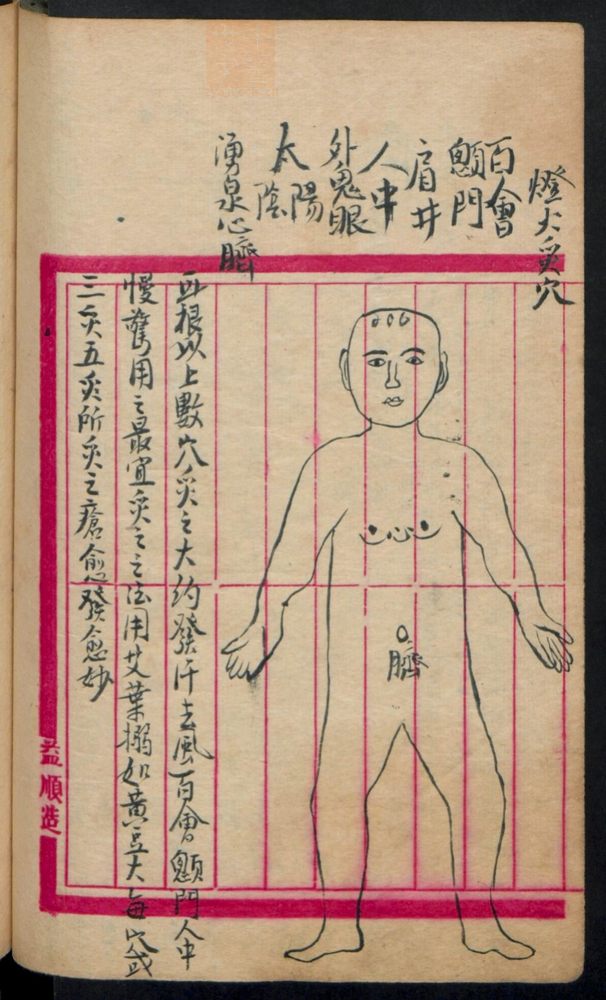 燈火灸穴
百會
顖門
肩井
人中
外鬼眼
太陽
陰
湧泉心臍
耳根以上數穴灸之大約發汗去風百會顖門人中
慢驚用之最宜灸之之法用艾葉搦如黃豆大每穴或
三灸五灸所灸之瘡愈發愈妙
臍
益順造